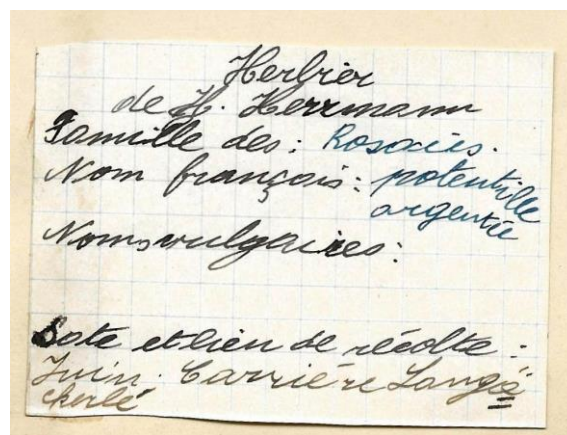 Herbier
de H. Herrmann
Famille des: Rosacées.
Nom français: potentille
argentée
Noms vulgaires:
Date et lieu de récolte:
Juin. Carrière